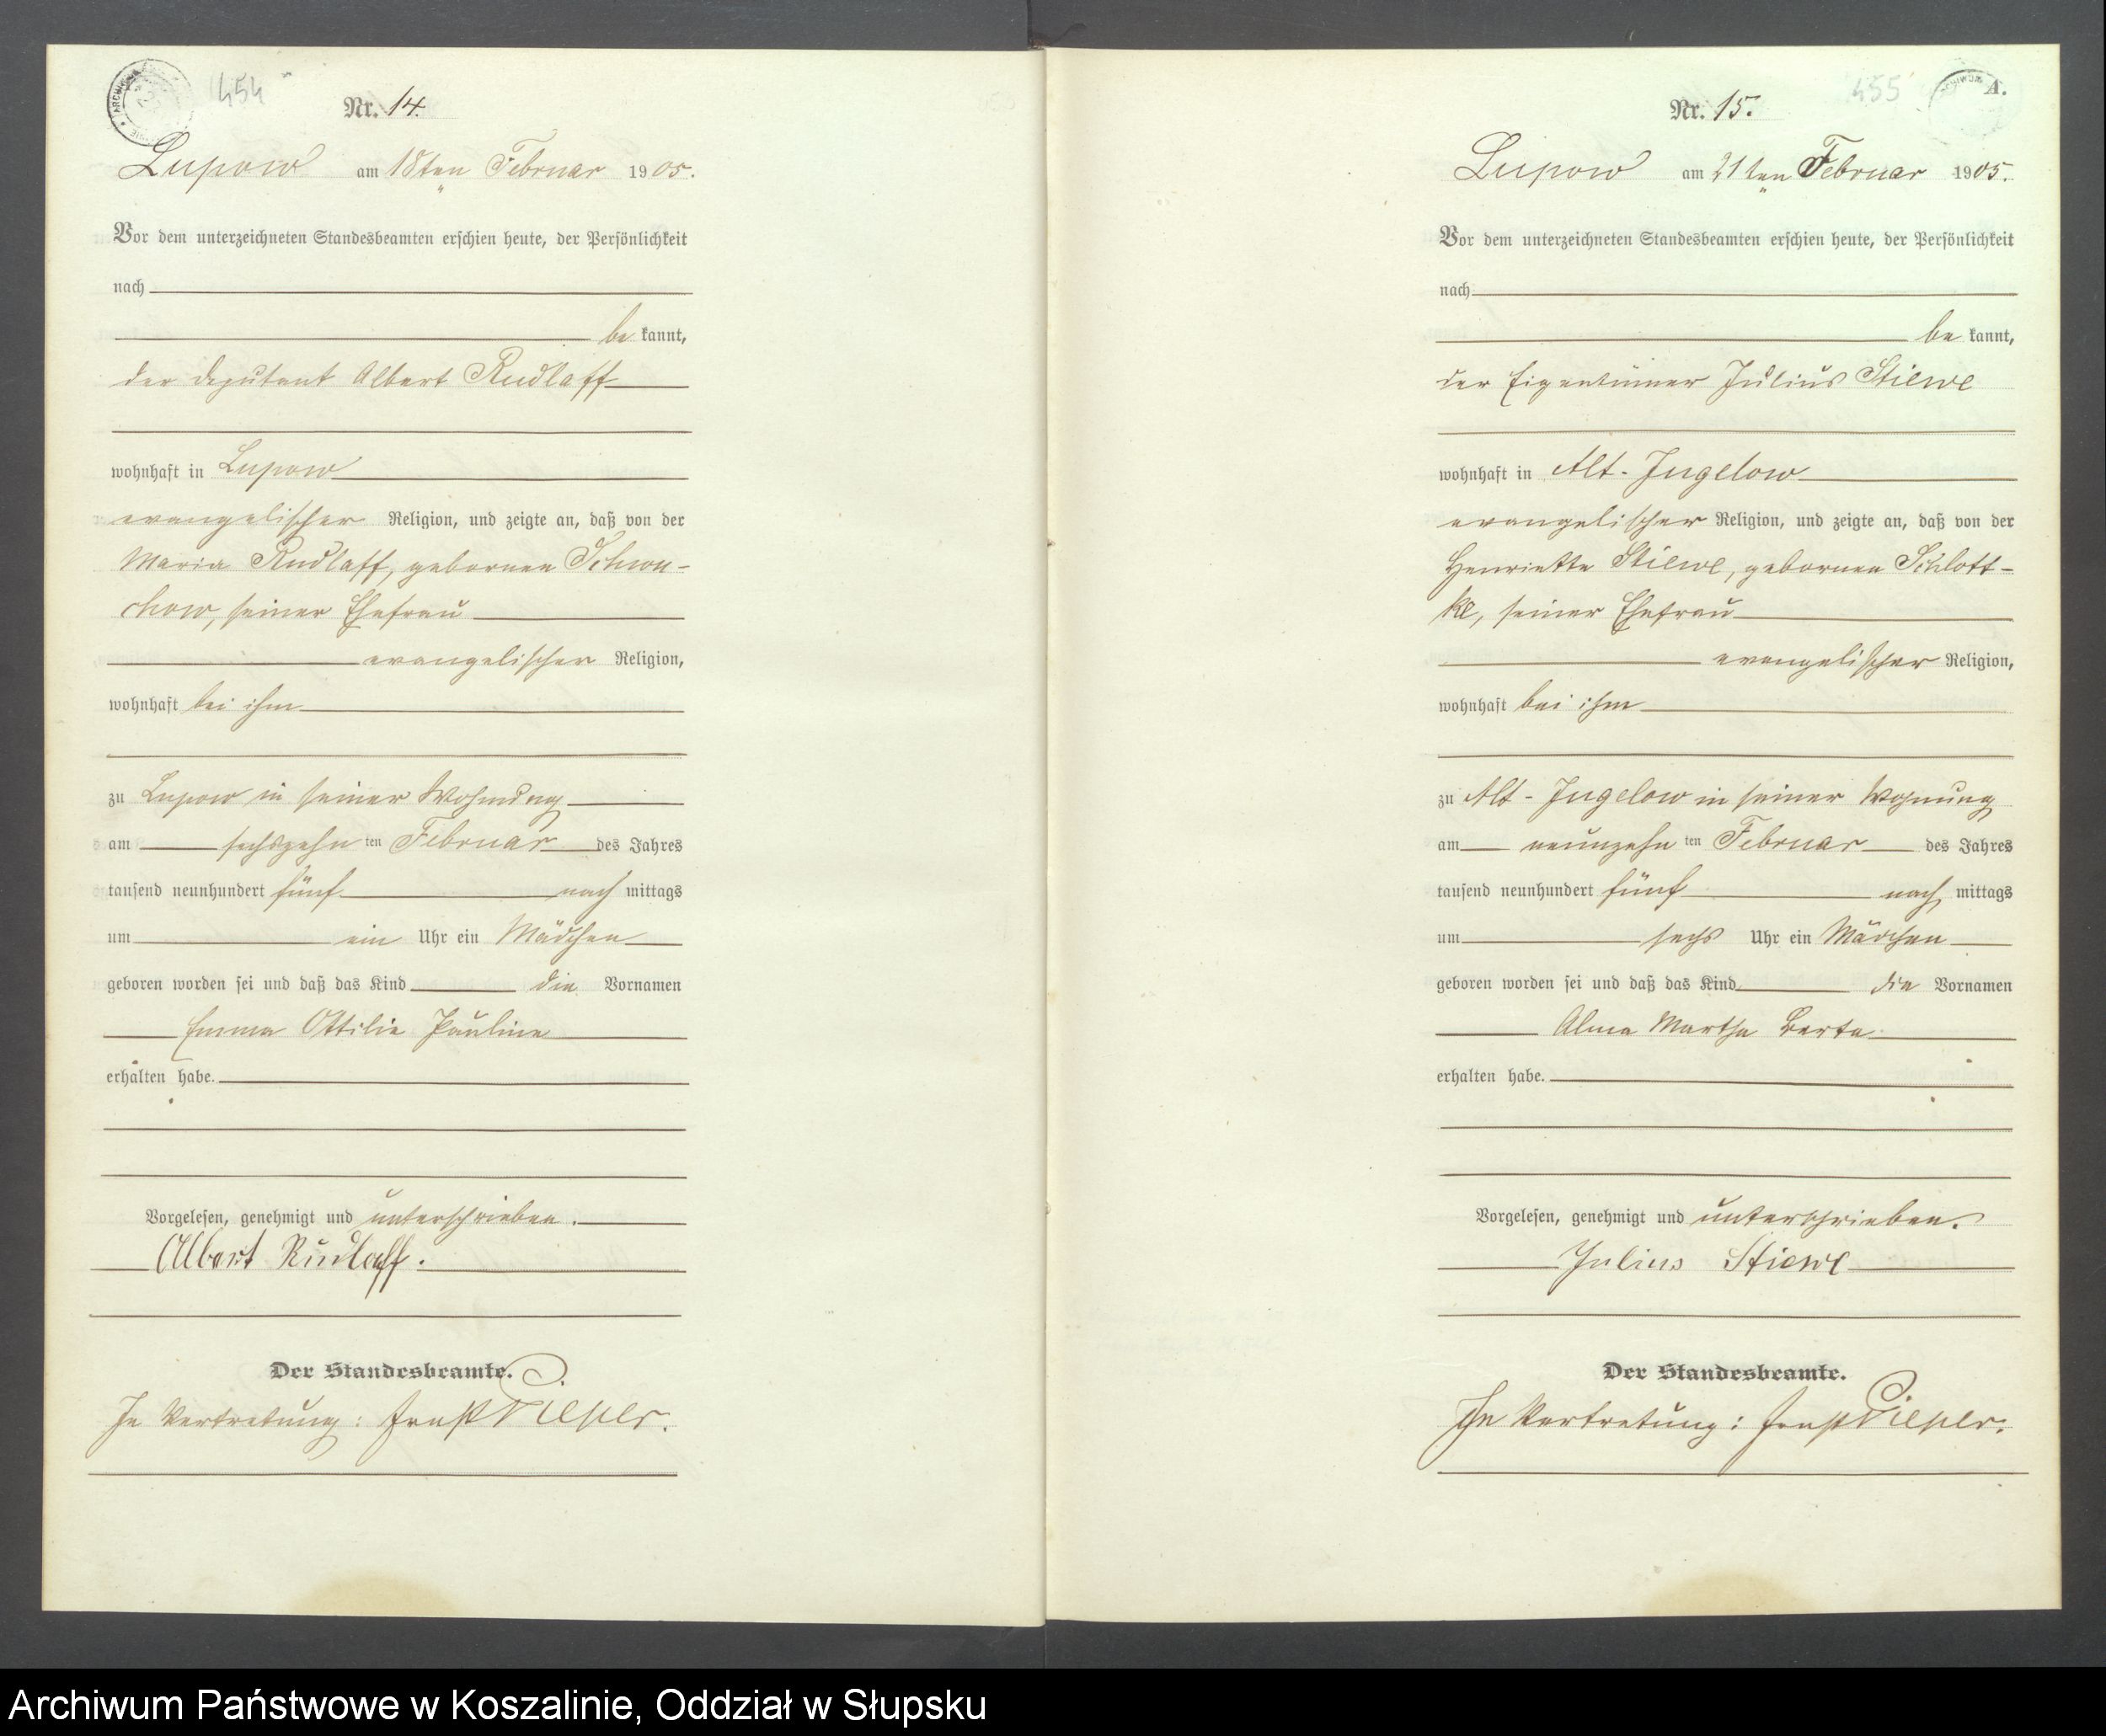 454
Nr. 14.
Lupow am 18ten Februar 1905.
Vor dem unterzeichneten Standesbeamten erschien heute, der Persönlichkeit
nach
be kannt,
der Deputant Albert Rudlaff
wohnhaft in Lupow
evangelischer Religion, und zeigte an, daß von der
Maria Rudlaff, gebornen Schwu-
chow, seiner Ehefrau
evangelischer Religion,
wohnhaft bei ihm
zu Lupow in seiner Wohnung
am sechszehn ten Februar des Jahres
tausend neunhundert fünf nach mittags
um ein Uhr ein Mädchen
geboren worden sei und daß das Kind die Vornamen
Emma Ottilie Pauline
erhalten habe.
Vorgelesen, genehmigt und unterschrieben.
Albert Rudlaff.
Der Standesbeamte.
In Vertretung: Ernst Pieper.
455
A.
Nr. 15.
Lupow am 21ten Februar 1905.
Vor dem unterzeichneten Standesbeamten erschien heute, der Persönlichkeit
nach
be kannt,
der Eigentümer Julius Stiewe
wohnhaft in Alt-Jugelow
evangelischer Religion, und zeigte an, daß von der
Henriette Stiewe, gebornen Schlott-
ke, seiner Ehefrau
evangelischer Religion,
wohnhaft bei ihm
zu Alt-Jugelow in seiner Wohnung
am neunzehn ten Februar des Jahres
tausend neunhundert fünf nach mittags
um sechs Uhr ein Mädchen
geboren worden sei und daß das Kind die Vornamen
Alma Martha Berta
erhalten habe.
Vorgelesen, genehmigt und unterschrieben.
Julius Stiewe
Der Standesbeamte.
In Vertretung: Ernst Pieper.
Archiwum Państwowe w Koszalinie, Oddział w Słupsku